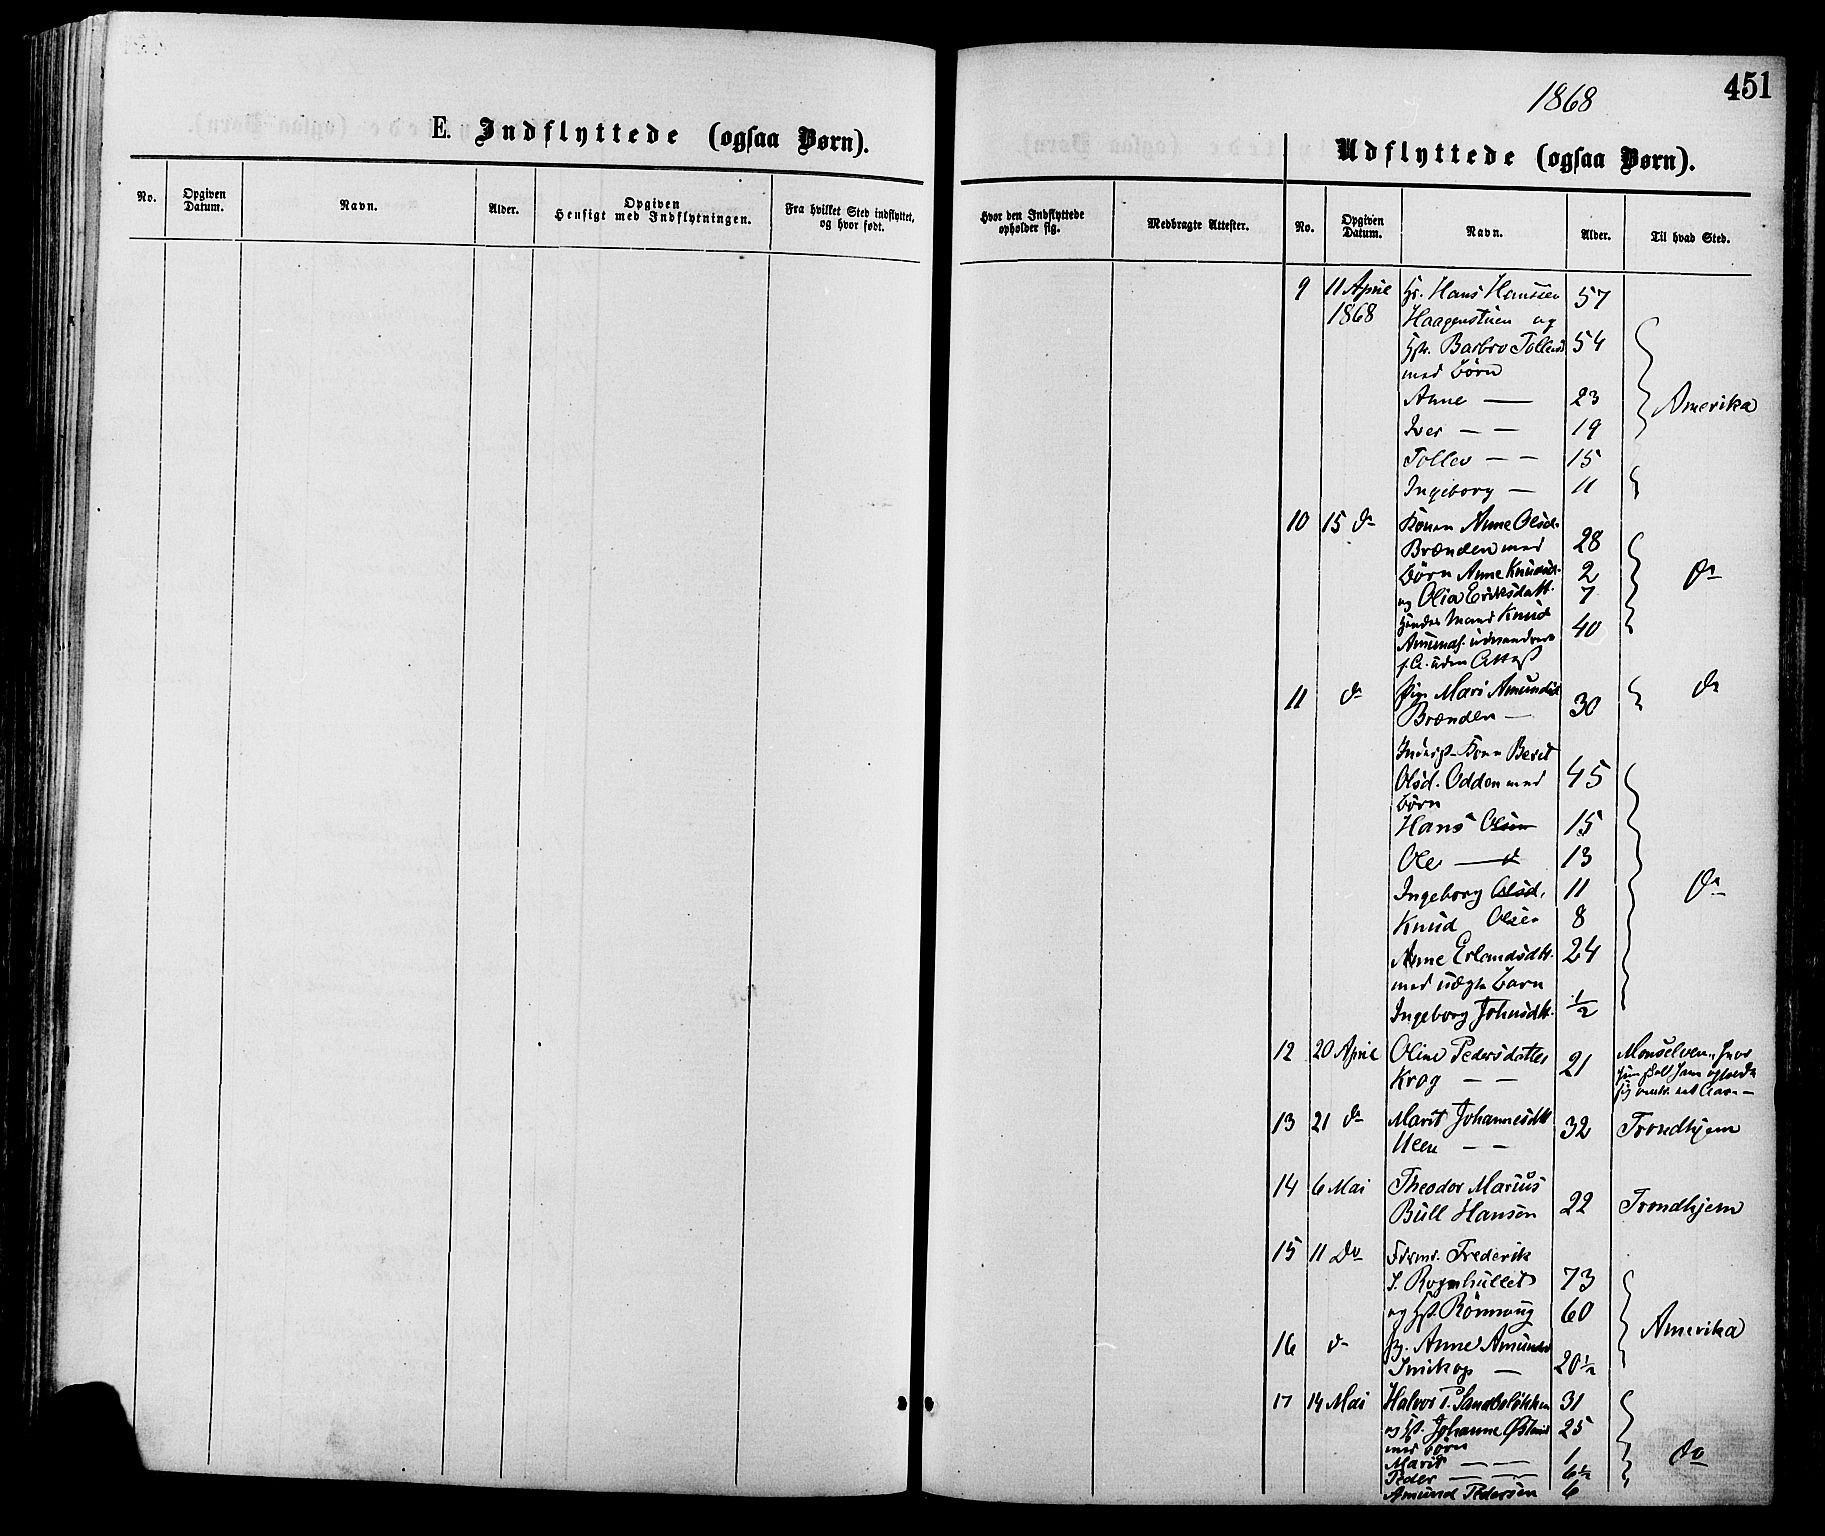 451
1868
E. Indflyttede (ogsaa Børn).
Udflyttede (ogsaa Børn).
No.
Opgiven Datum.
Navn.
Alder.
Opgiven Hensigt med Indflytningen.
Fra hvilket Sted indflyttet, og hvor født.
Hvor den Indflyttede opholder sig.
Medbragte Attester.
No.
Opgiven Datum.
Navn.
Alder.
Til hvad Sted.
9 11 April Hans Hanssen 57
1868 Haagenstuen og
Barbro Tollevsd 54
med Børn
Anne — 23 Amerika
Iver — — 19
Tollev — — 15
Ingeborg — 11
10 15 do Konen Anne Olsd.
Brænden med 28
Børn Anne Knudsd. 2 do
og Olia Eriksdatt. 7
hendes Mand Knud 40
Amunds. udvandrere
f. A. uden Attest
11 do Pige Mari Amundsd do
Brænden — 30
Inderst Kone Berit
Olsd. Odden med 45
Børn
Hans Olsen 15
Ole — 13
Ingeborg Olsd. 11 do
Knud Olsen 8
Anne Erlandsdtt. 24
med uægte Barn
Ingeborg Johnsdtt. 1/2
12 20 April Oline Pedersdatter 21 Monselven, hvor
Krog — —
13 21 do Marit Johannesdtt 32 Trondhjem
Ueen — —
14 6 Mai Theodor Marius
Bull Hansen 22 Trondhjem
15 11 do Frederik
Rognhullet 73
og Rönnaug 60
16 do Anne Amunds Amerika
— 20 1/2
17 14 Mai Halvor P. Sandbeløkken 31
og Johanne 25
med Børn
Marit — — 1 do
Peder — — 6 1/2
Amund Pedersen 6